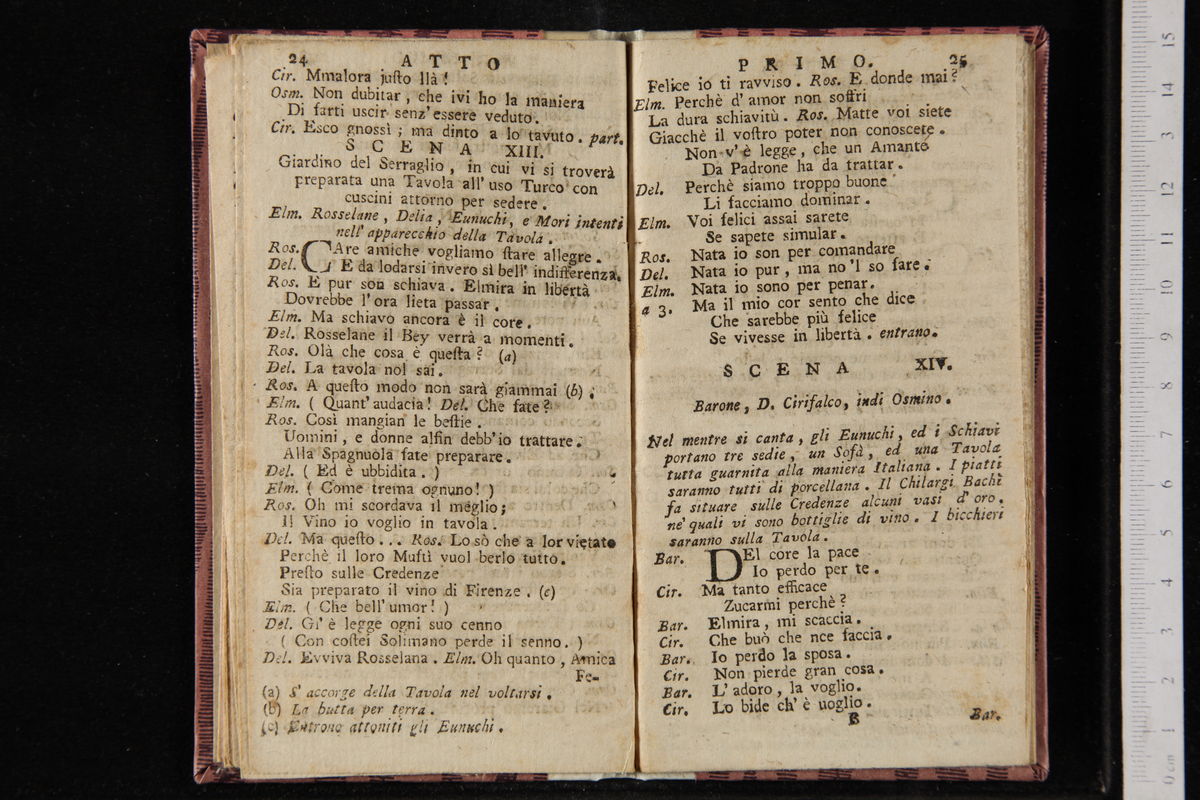 24 ATTO
Cir. Mmalora juſto llà!
Osm. Non dubitar, che ivi ho la maniera
Di farti uscir senz' essere veduto.
Cir. Esco gnossì; ma dinto a lo tavuto. part.
SCENA XIII.
Giardino del Serraglio, in cui vi si troverà
preparata una Tavola all' uso Turco con
cuscini attorno per sedere.
Elm. Rosselane, Delia, Eunuchi, e Mori intenti
nell' apparecchio della Tavola.
Ros. CAre amiche vogliamo ſtare allegre.
Del. E da lodarsi invero sì bell' indifferenza.
Ros. E pur son schiava. Elmira in libertà
Dovrebbe l' ora lieta passar.
Elm. Ma schiavo ancora è il core.
Del. Rosselane il Bey verrà a momenti.
Ros. Olà che cosa è queſta? (a)
Del. La tavola nol sai.
Ros. A queſto modo non sarà giammai (b).
Elm. ( Quant' audacia! Del. Che fate?
Ros. Così mangian le beſtie.
Uomini, e donne alfin debb' io trattare.
Alla Spagnuola fate preparare.
Del. ( Ed è ubbidita. )
Elm. ( Come trema ognuno! )
Ros. Oh mi scordava il meglio;
Il Vino io voglio in tavola.
Del. Ma queſto... Ros. Lo sò che a lor vietato
Perchè il loro Muftì vuol berlo tutto.
Preſto sulle Credenze
Sia preparato il vino di Firenze. (c)
Elm. ( Che bell' umor! )
Del. Gl' è legge ogni suo cenno
( Con coſtei Solimano perde il senno. )
Del. Evviva Rosselana. Elm. Oh quanto, Amica
Fe-
(a) S' accorge della Tavola nel voltarsi.
(b) La butta per terra.
(c) Entrono attoniti gli Eunuchi.
PRIMO. 25
Felice io ti ravviso. Ros. E donde mai?
Elm. Perchè d' amor non soffri
La dura schiavitù. Ros. Matte voi siete
Giacchè il voſtro poter non conoscete.
Non v' è legge, che un Amante
Da Padrone ha da trattar.
Del. Perchè siamo troppo buone
Li facciamo dominar.
Elm. Voi felici assai sarete
Se sapete simular.
Ros. Nata io son per comandare
Del. Nata io pur, ma no 'l so fare.
Elm. Nata io sono per penar.
a 3. Ma il mio cor sento che dice
Che sarebbe più felice
Se vivesse in libertà. entrano.
SCENA XIV.
Barone, D. Cirifalco, indi Osmino.
Nel mentre si canta, gli Eunuchi, ed i Schiavi
portano tre sedie, un Sofà, ed una Tavola
tutta guarnita alla maniera Italiana. I piatti
saranno tutti di porcellana. Il Chilargi Bachi
fa situare sulle Credenze alcuni vasi d' oro,
ne' quali vi sono bottiglie di vino. I bicchieri
saranno sulla Tavola.
Bar. DEl core la pace
Io perdo per te.
Cir. Ma tanto efficace
Zucarmi perchè?
Bar. Elmira, mi scaccia.
Cir. Che buò che nce faccia.
Bar. Io perdo la sposa.
Cir. Non pierde gran cosa.
Bar. L' adoro, la voglio.
Cir. Lo bide ch' è uoglio.
B Bar.
0 cm 1 2 3 4 5 6 7 8 9 10 11 12 13 14 15